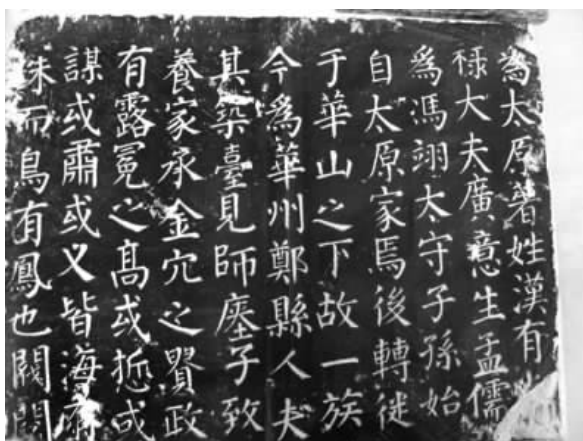 為太原著姓漢有光
祿大夫廣意生孟儒
爲馮翊太守子孫始
自太原家焉後轉徙
于華山之下故一族
今爲華州鄭縣人夫
其築臺見師瘞子致
養家承金穴之貴政
有露冕之高或悊或
謀或肅或乂皆海
珠而鳥有鳳也閥閱